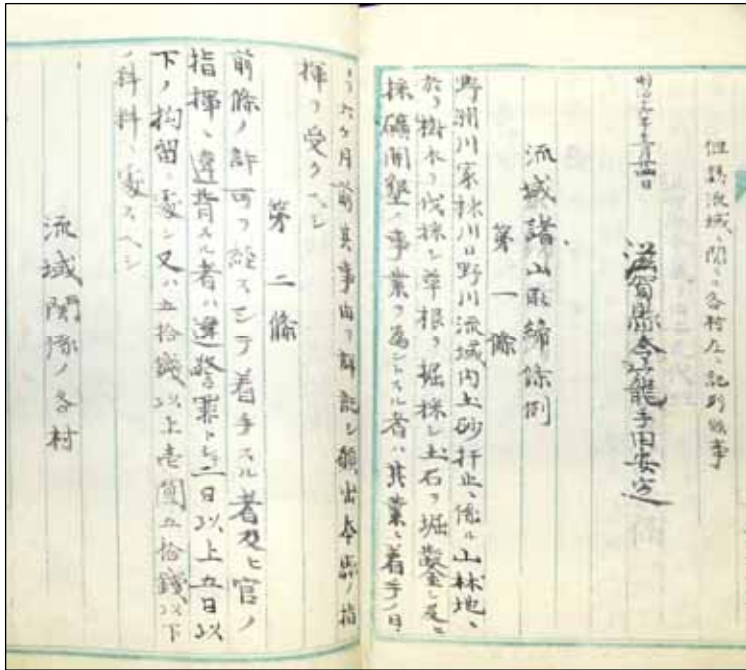 但該流域ニ関スル各村左ニ記列候事
明治十六年 月 四日
滋賀縣令籠手田安定
流域諸山取締條例
第一條
野洲川家棟川日野川流域内土砂扞止ニ係ル山林地ニ
於テ樹木ヲ伐採シ草根ヲ掘採シ土石ヲ堀鑿シ及ヒ
採礦開墾ノ事業ヲ為シトスル者ハ其業ニ着手ノ日
ヨリ六ヶ月前其事由ヲ詳記シ願出本縣ノ指
揮ヲ受クヘシ
第二條
前條ノ許可ヲ経スシテ着手スル者及ヒ官ノ
指揮ニ違背スル者ハ違警罪トシ二日以上五日以
下ノ拘留ニ處シ又ハ五拾錢以上壱圓五拾錢以下
ノ科料ニ處スヘシ
流域関係ノ各村